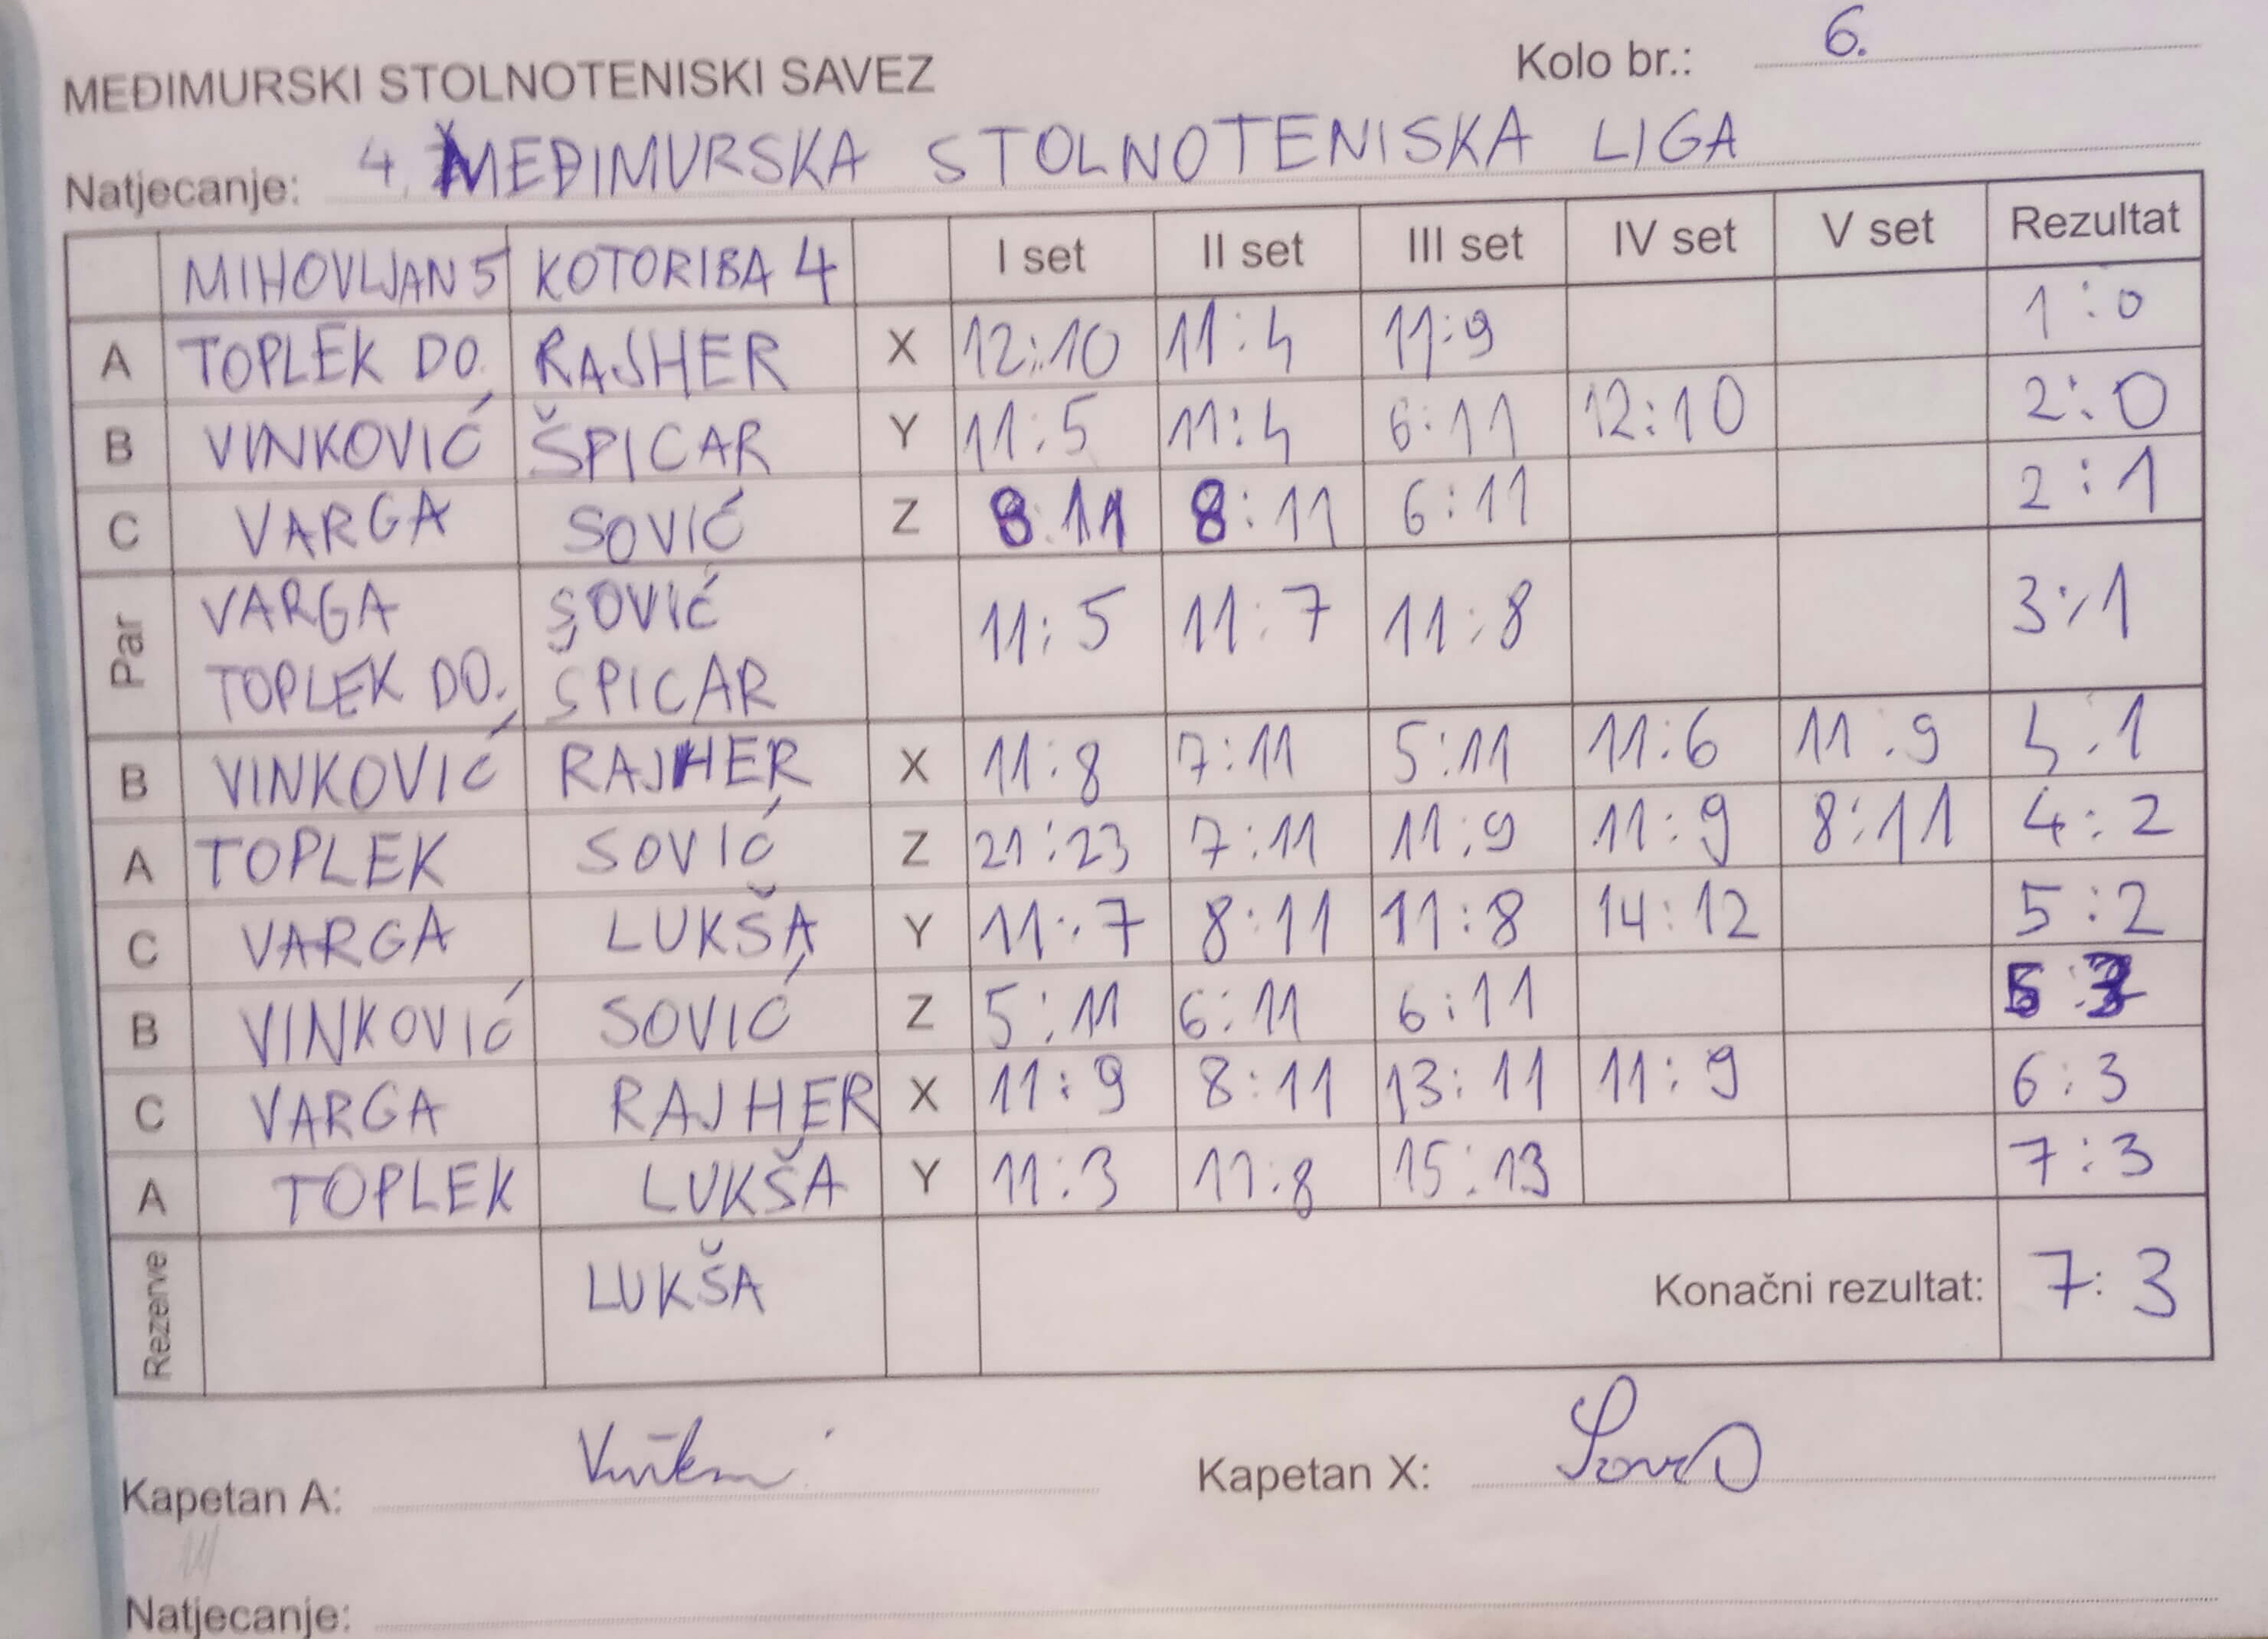 MEĐIMURSKI STOLNOTENISKI SAVEZ Kolo br.: 6.
Natjecanje: 4. MEĐIMURSKA STOLNOTENISKA LIGA
MIHOVLJAN 5 KOTORIBA 4 I set II set III set IV set V set Rezultat
A TOPLEK DO. RAJHER X 12:10 11:4 11:9 1:0
B VINKOVIĆ ŠPICAR Y 11:5 11:4 6:11 12:10 2:0
C VARGA SOVIĆ Z 8:11 8:11 6:11 2:1
Par VARGA SOVIĆ 11:5 11:7 11:8 3:1
TOPLEK DO. ŠPICAR
B VINKOVIĆ RAJHER X 11:8 7:11 5:11 11:6 11:9 4:1
A TOPLEK SOVIĆ Z 21:23 7:11 11:9 11:9 8:11 4:2
C VARGA LUKŠA Y 11:7 8:11 11:8 14:12 5:2
B VINKOVIĆ SOVIĆ Z 5:11 6:11 6:11 5:3
C VARGA RAJHER X 11:9 8:11 13:11 11:9 6:3
A TOPLEK LUKŠA Y 11:3 11:8 15:13 7:3
Rezerve LUKŠA Konačni rezultat: 7:3
Kapetan A: Kapetan X:
Natjecanje: